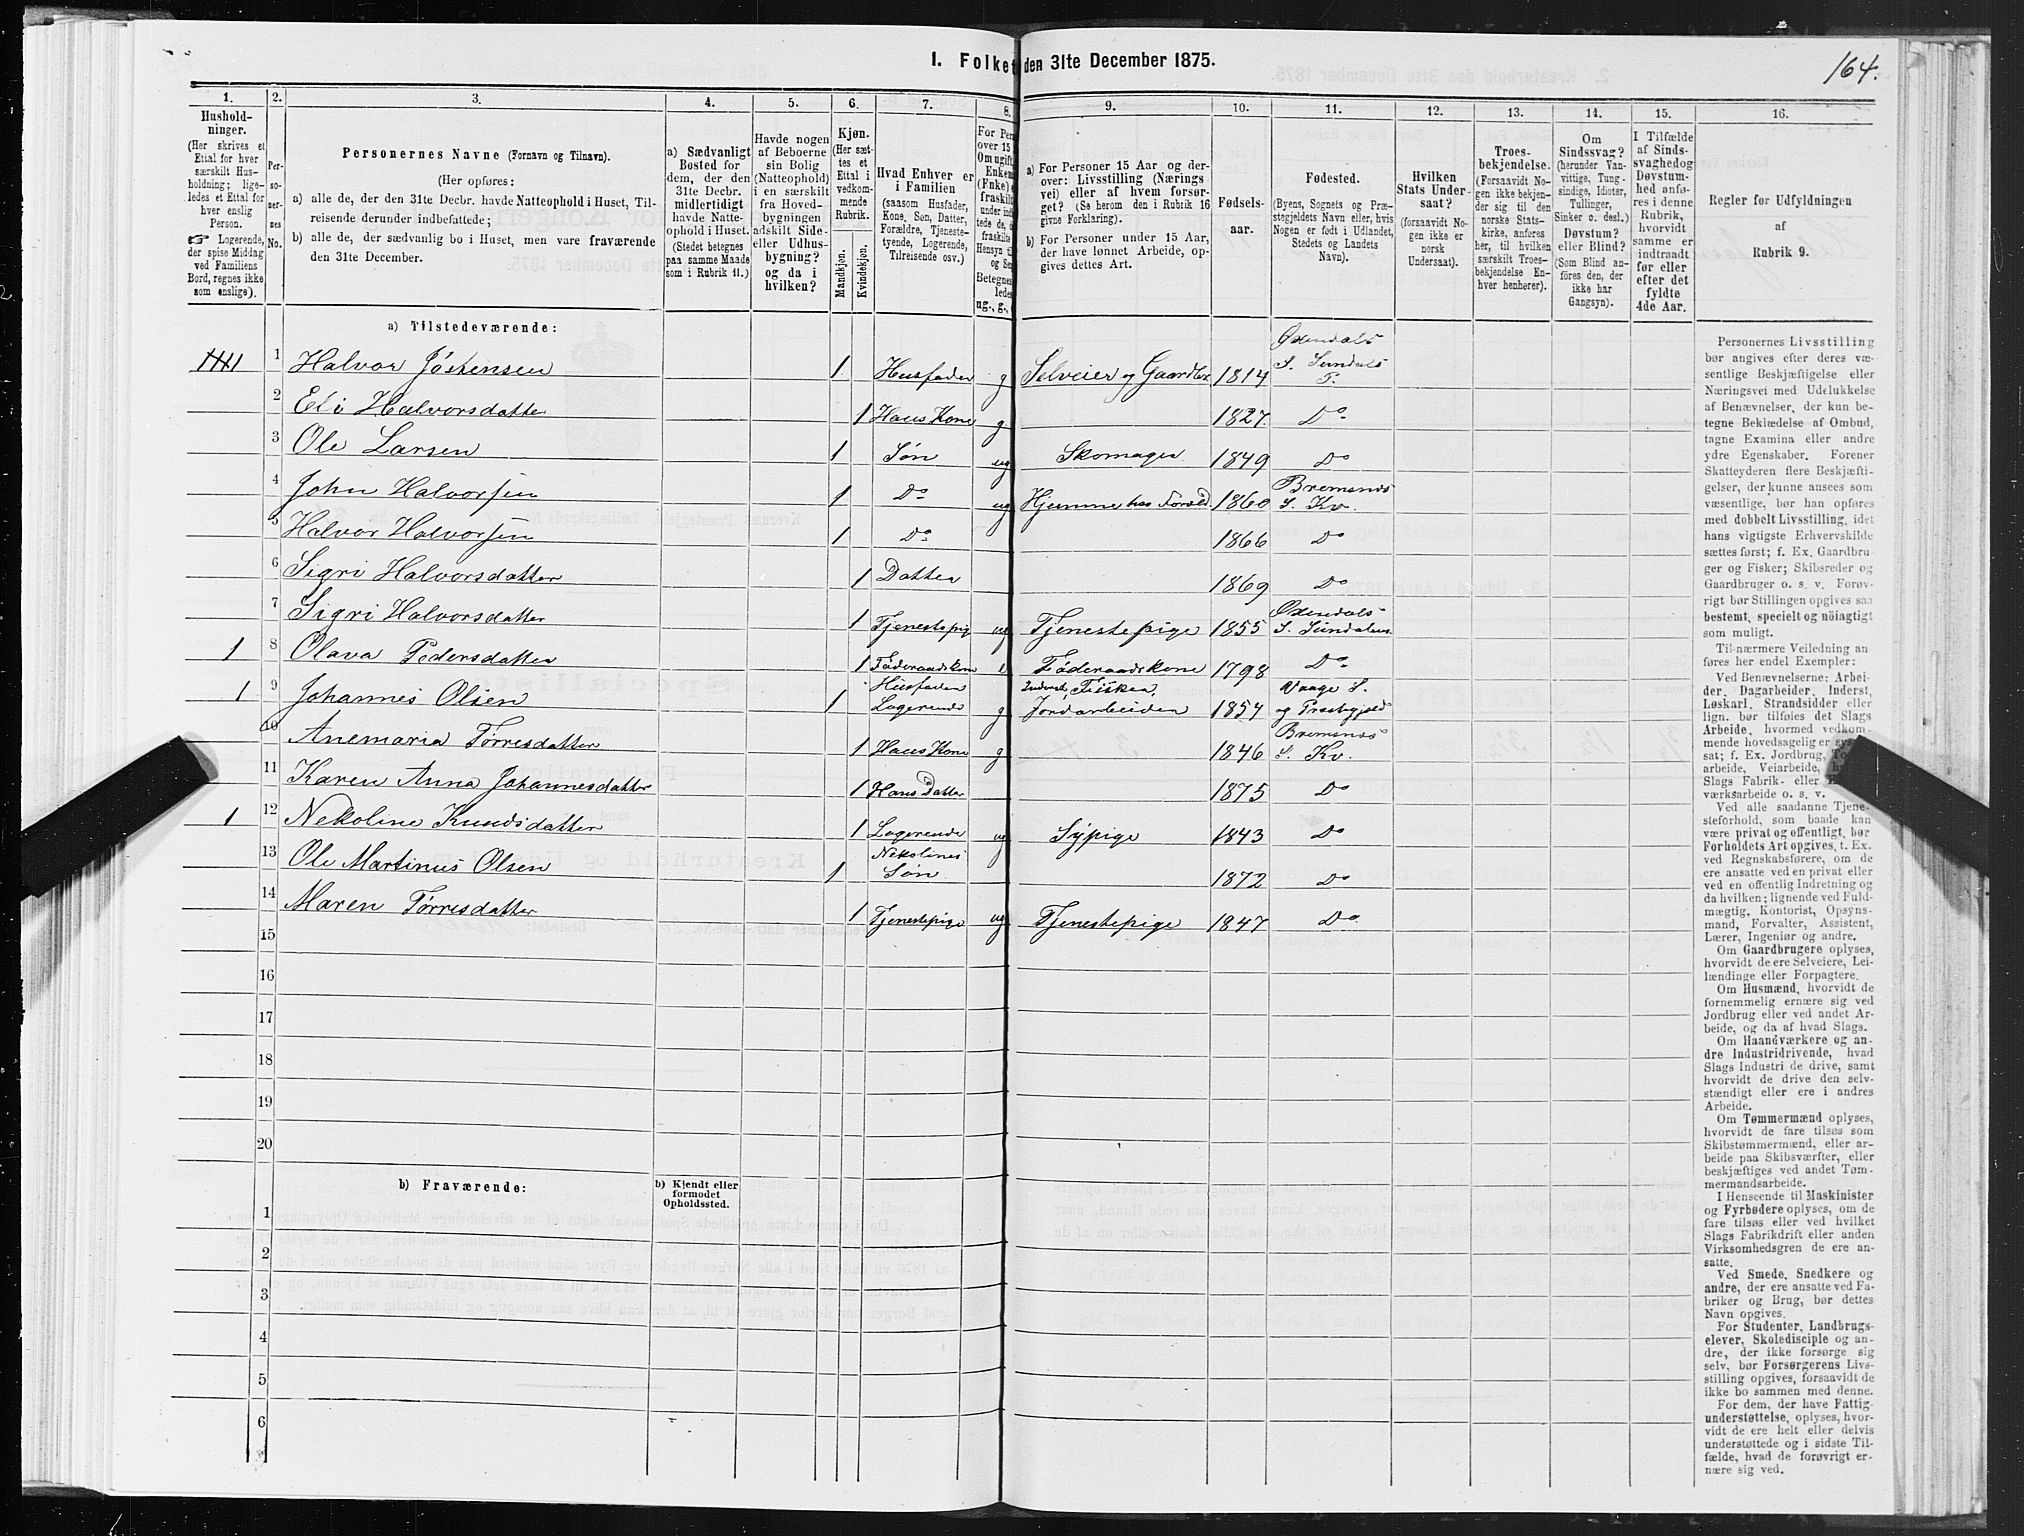 1. Folket den 31te December 1875.
164.
1. 2. 3. 4. 5. 6. 7. 8. 9. 10. 11. 12. 13. 14. 15. 16.
Hushold-
ninger.
(Her skrives et
Ettal for hver
særskilt Hus-
holdning; lige-
ledes et Ettal for
hver enslig
Person.
☞ Logerende,
der spise Middag
ved Familiens
Bord, regnes ikke
som enslige).
Per-
so-
ner-
nes
No.
Personernes Navne (Fornavn og Tilnavn).
(Her opføres:
a) alle de, der den 31te Decbr. havde Natteophold i Huset, Til-
reisende derunder indbefattede;
b) alle de, der sædvanlig bo i Huset, men vare fraværende
den 31te December.
a) Sædvanligt
Bosted for
dem, der den
31te Decbr.
midlertidigt
havde Natte-
ophold i Huset.
(Stedet betegnes
paa samme Maade
som i Rubrik 11.)
Havde nogen
af Beboerne
sin Bolig
(Natteophold)
i en særskilt
fra Hoved-
bygningen
adskilt Side-
eller Udhus-
bygning?
og da i
hvilken?
Kjøn.
(Her sæt-
tes et
Ettal i
vedkom-
mende
Rubrik.
Mandkjøn.
Kvindekjøn.
Hvad Enhver er
i Familien
(saasom Husfader,
Kone, Søn, Datter,
Forældre, Tjeneste-
tyende, Logerende,
Tilreisende osv.)
For Per
over 15
Om ugift
Enkem
(Enke) e
fraskilt
under ind
tede de,
fraskilte
Hensyn til
og Se
Betegnes
ledes
ug., g.,
a) For Personer 15 Aar og der-
over: Livsstilling (Nærings
vei) eller af hvem forsør-
get? (Se herom den i Rubrik 16
givne Forklaring).
b) For Personer under 15 Aar,
der have lønnet Arbeide, op-
gives dettes Art.
Fødsels-
aar.
Fødested.
(Byens, Sognets og Præ-
stegjeldets Navn eller, hvis
Nogen er født i Udlandet,
Stedets og Landets
Navn).
Hvilken
Stats Under-
saat?
(forsaavidt No-
gen ikke er
norsk
Undersaat).
Troes-
bekjendelse.
(Forsaavidt No-
gen ikke bekjen-
der sig til den
norske Stats-
kirke, anføres
her, til hvilken
særskilt Troes-
bekjendelse En-
hver henhører).
Om
Sindssvag?
(herunder Van-
vittige, Tung-
sindige, Idioter,
Tullinger,
Sinker o. desl.)
Døvstum?
eller Blind?
(Som Blind an-
føres den, der
ikke har
Gangsyn).
I Tilfælde
af Sinds-
svaghedog
Døvstum-
hed anfø-
res i denne
Rubrik,
hvorvidt
samme er
indtraadt
før eller
efter det
fyldte
4de Aar.
Regler for Udfyldningen
af
Rubrik 9.
a) Tilstedeværende:
1 Halvor Jøstensen 1 Husfader g Selveier og Gaardbr 1814 Ødendals S. Sundals P.
2 Eli Halvorsdatter 1 Hans Kone g 1827. Do
3 Ole Larsen 1 Søn ug Skomager 1849 Do
4 John Halvorsen 1 Do ug Hjemme hos Foræld 1860 Bremsnes S. Kv.
5 Halvor Halvorsen 1 Do 1866 Do
6 Sigri Halvorsdatter 1 Datter 1869 Do
7 Sigri Halvorsdatter 1 Tjenestepig ug Tjenestepige 1855 Ødendals S. Sundalens
1 8 Olava Pedersdatter 1 Føderaadskone e Føderaadskone 1798 Do
1 9 Johannes Olsen 1 Husfader Logerende g Inderst, Fisker, Jordarbeider 1854 Vaage S. og Præstegjeld
10 Anemaria Tørresdatter 1 Hans Kone g 1846 Bremsnes S. Kv.
11 Karen Anna Johannesdatter 1 Hans Datter 1875 Do
1 12 Nekoline Knudsdatter 1 Logerende ug Sypige 1843 Do
13 Ole Martinus Olsen 1 Nekolines Søn 1872 Do
14 Maren Tørresdatter 1 Tjenestepige ug Tjenestepige 1847 Do
15
16
17
18
19
20
b) Fraværende:
b) Kjendt eller
formodet
Opholdssted.
1
2
3
4
5
6
Personernes Livsstilling
bør angives efter deres væ-
sentlige Beskjæftigelse eller
Næringsvei med Udelukkelse
af Benævnelser, der kun be-
tegne Beklædelse af Ombud,
tagne Examina eller andre
ydre Egenskaber. Forener
Skatteyderen flere Beskjæfti-
gelser, der kunne ansees som
væsentlige, bør han opføres
med dobbelt Livsstilling, idet
hans vigtigste Erhvervskilde
sættes først; f. Ex. Gaardbru-
ger og Fisker; Skibsreder og
Gaardbruger o. s. v. Forøv-
rigt bør Stillingen opgives saa
bestemt, specielt og nöiagtigt
som muligt.
Til nærmere Veiledning an
føres her endel Exempler:
Ved Benævnelserne: Arbei-
der, Dagarbeider, Inderst,
Løskarl, Strandsidder eller
lign. bør tilføies det Slags
Arbeide, hvormed vedkom-
mende hovedsagelig er sys
sat; f. Ex. Jordbrug, To
arbeide, Veiarbeide,
Slags Fabrik- eller
værksarbeide o. s. v.
Ved alle saadanne Tjene-
steforhold, som baade kan
være privat og offentligt, bør
Forholdets Art opgives, t. Ex.
ved Regnskabsførere, om de
ere ansatte ved en privat eller
ved en offentlig Indretning og
da hvilken; lignende ved Fuld-
mægtig, Kontorist, Opsyns-
mand, Forvalter, Assistent,
Lærer, Ingeniør og andre.
Om Gaardbrugere oplyses,
hvorvidt de ere Selveiere, Lei-
lændinge eller Forpagtere.
Om Husmænd, hvorvidt de
fornemmelig ernære sig ved
Jordbrug eller ved andet Ar-
beide, og da af hvad Slags.
Om Haandværkere og an-
dre Industridrivende, hvad
Slags Industri de drive, samt
hvorvidt de drive den selv-
stændigt eller ere i andres
Arbeide.
Om Tømmermænd oplyses,
hvorvidt de fare tilsøs som
Skibstømmermænd, eller ar-
beide paa Skibsværfter, eller
beskjæftiges ved andet Tøm-
mermandsarbeide.
I Henseende til Maskinister
og Fyrbødere oplyses, om de
fare tilsøs eller ved hvilket
Slags Fabrikdrift eller anden
Virksomhedsgren de ere an-
satte.
Ved Smede, Snedkere og
andre, der ere ansatte ved Fa-
briker og Brug, bør dettes
Navn opgives.
For Studenter, Landbrugs-
elever, Skoledisciple og an-
dre, der ikke forsørge sig
selv, bør Forsørgerens Livs-
stilling opgives, forsaavidt de
ikke bo sammen med denne.
For dem, der have Fattig-
understøttelse, oplyses, hvor-
vidt de ere helt eller delvis
understøttede og i sidste Til-
fælde, hvad de forøvrigt er-
nære sig ved.